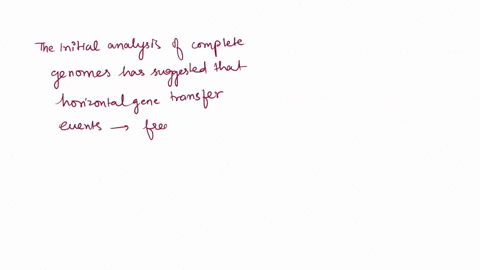 The initial analysis of complete
genomes has suggested that
horizontal gene transfer
events → fre